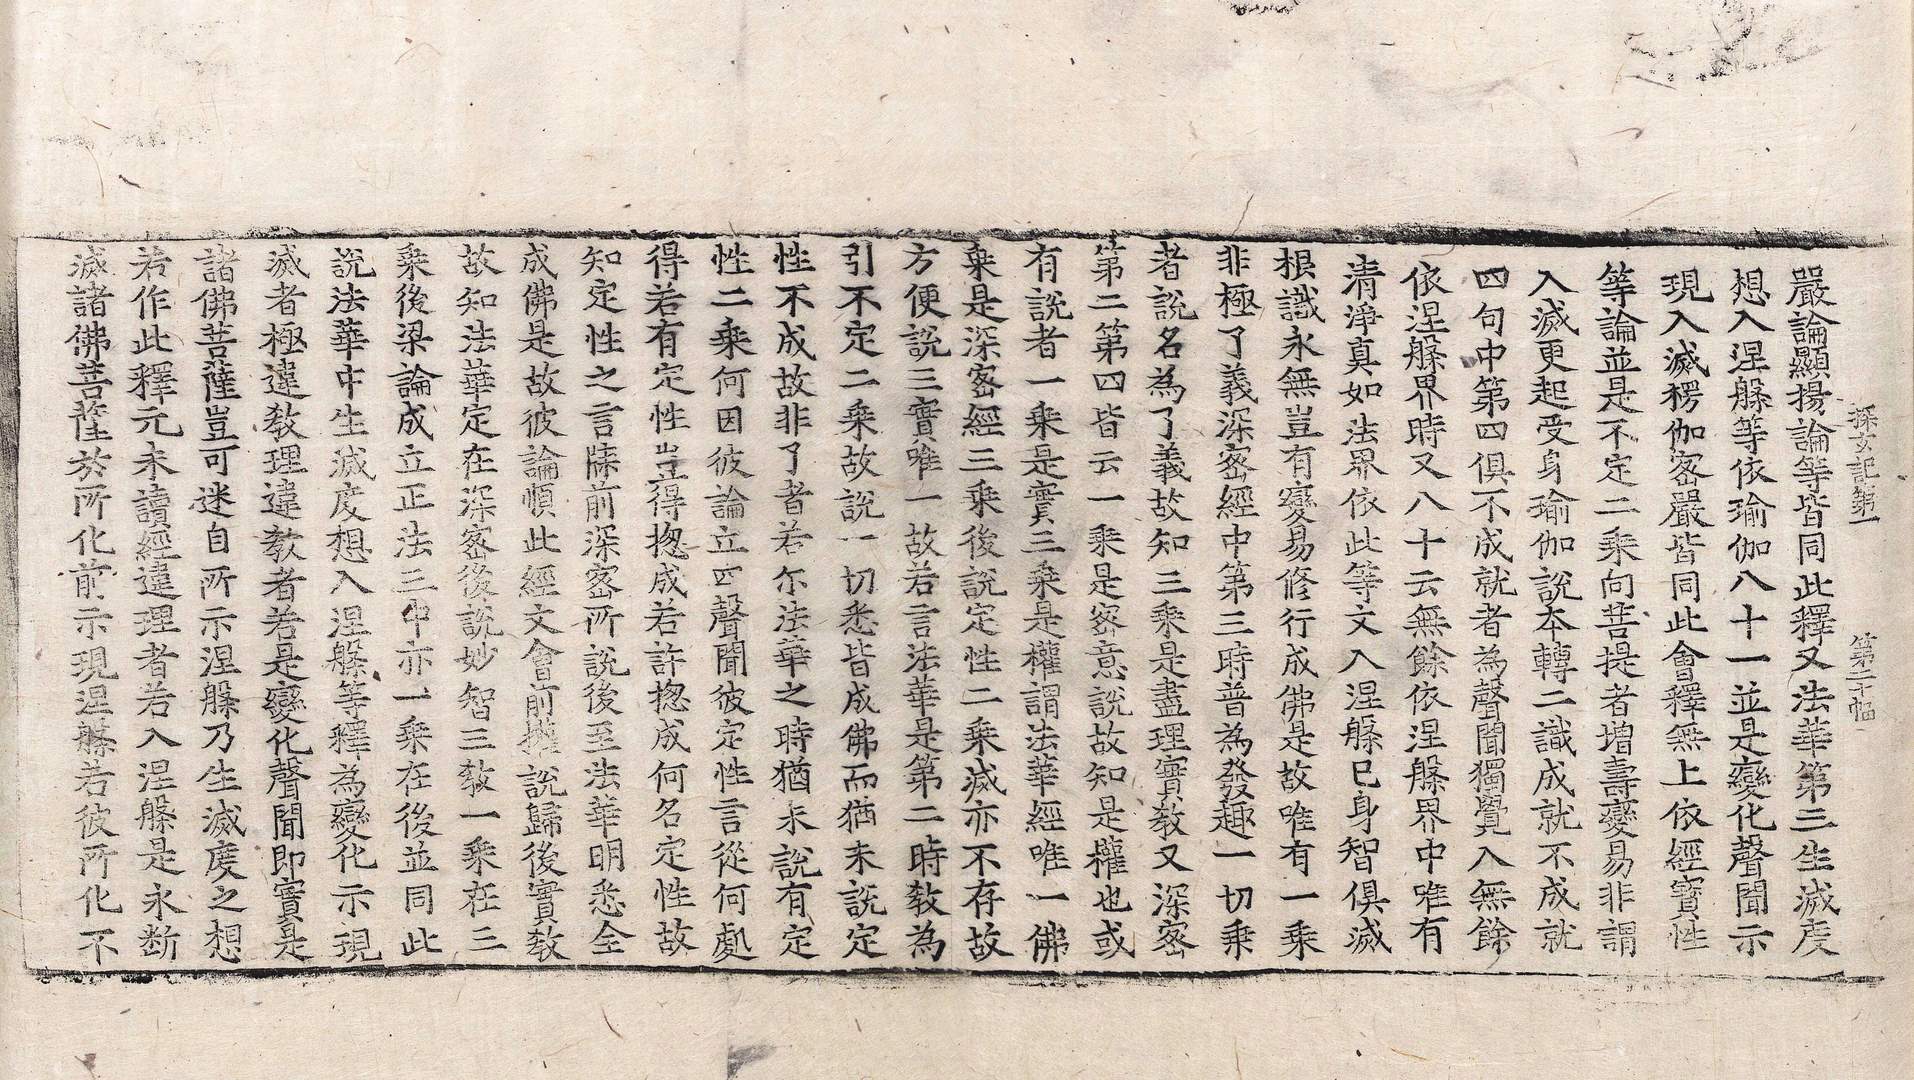 探玄記第一　第二十幅
嚴論顯揚論等皆同此釋又法華第三生滅度
想入涅槃等依瑜伽八十一並是變化聲聞示
現入滅楞伽密嚴皆同此會釋無上依經寶性
等論並是不定二乘向菩提者增壽變易非謂
入滅更起受身瑜伽說本轉二識成就不成就
四句中第四俱不成就者為聲聞獨覺入無餘
依涅槃界時又八十云無餘依涅槃界中唯有
清淨真如法界依此等文入涅槃已身智俱滅
根識永無豈有變易修行成佛是故唯有一乘
非極了義深密經中第三時普為發趣一切乘
者說名為了義故知三乘是盡理實教又深密
第二第四皆云一乘是密意說故知是權也或
有說者一乘是實三乘是權謂法華經唯一佛
乘是深密經三乘後說定性二乘滅亦不存故
方便說三實唯一故若言法華是第二時教為
引不定二乘故說一切悉皆成佛而猶未說定
性不成故非了者若尒法華之時猶未說有定
性二乘何因彼論立四聲聞彼定性言從何處
得若有定性豈得揔成若許揔成何名定性故
知定性之言牒前深密所說後至法華明悉全
成佛是故彼論順此經文會前權說歸後實教
故知法華定在深密後說妙智三教一乘在三
乘後梁論成立正法三中亦一乘在後並同此
說法華中生滅度想入涅槃等釋為變化示現
滅者極違教理違教者若是變化聲聞即實是
諸佛菩薩豈可迷自所示涅槃乃生滅度之想
若作此釋元未讀經違理者若入涅槃是永斷
滅諸佛菩薩於所化前示現涅槃若彼所化不